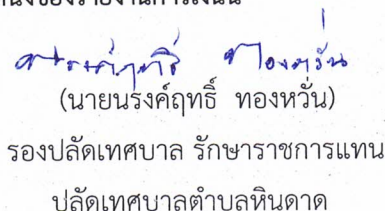 ณรงค์ฤทธิ์ ทองหวั่น
(นายนรงค์ฤทธิ์ ทองหวั่น)
รองปลัดเทศบาล รักษาราชการแทน
ปลัดเทศบาลตำบลหินดาด